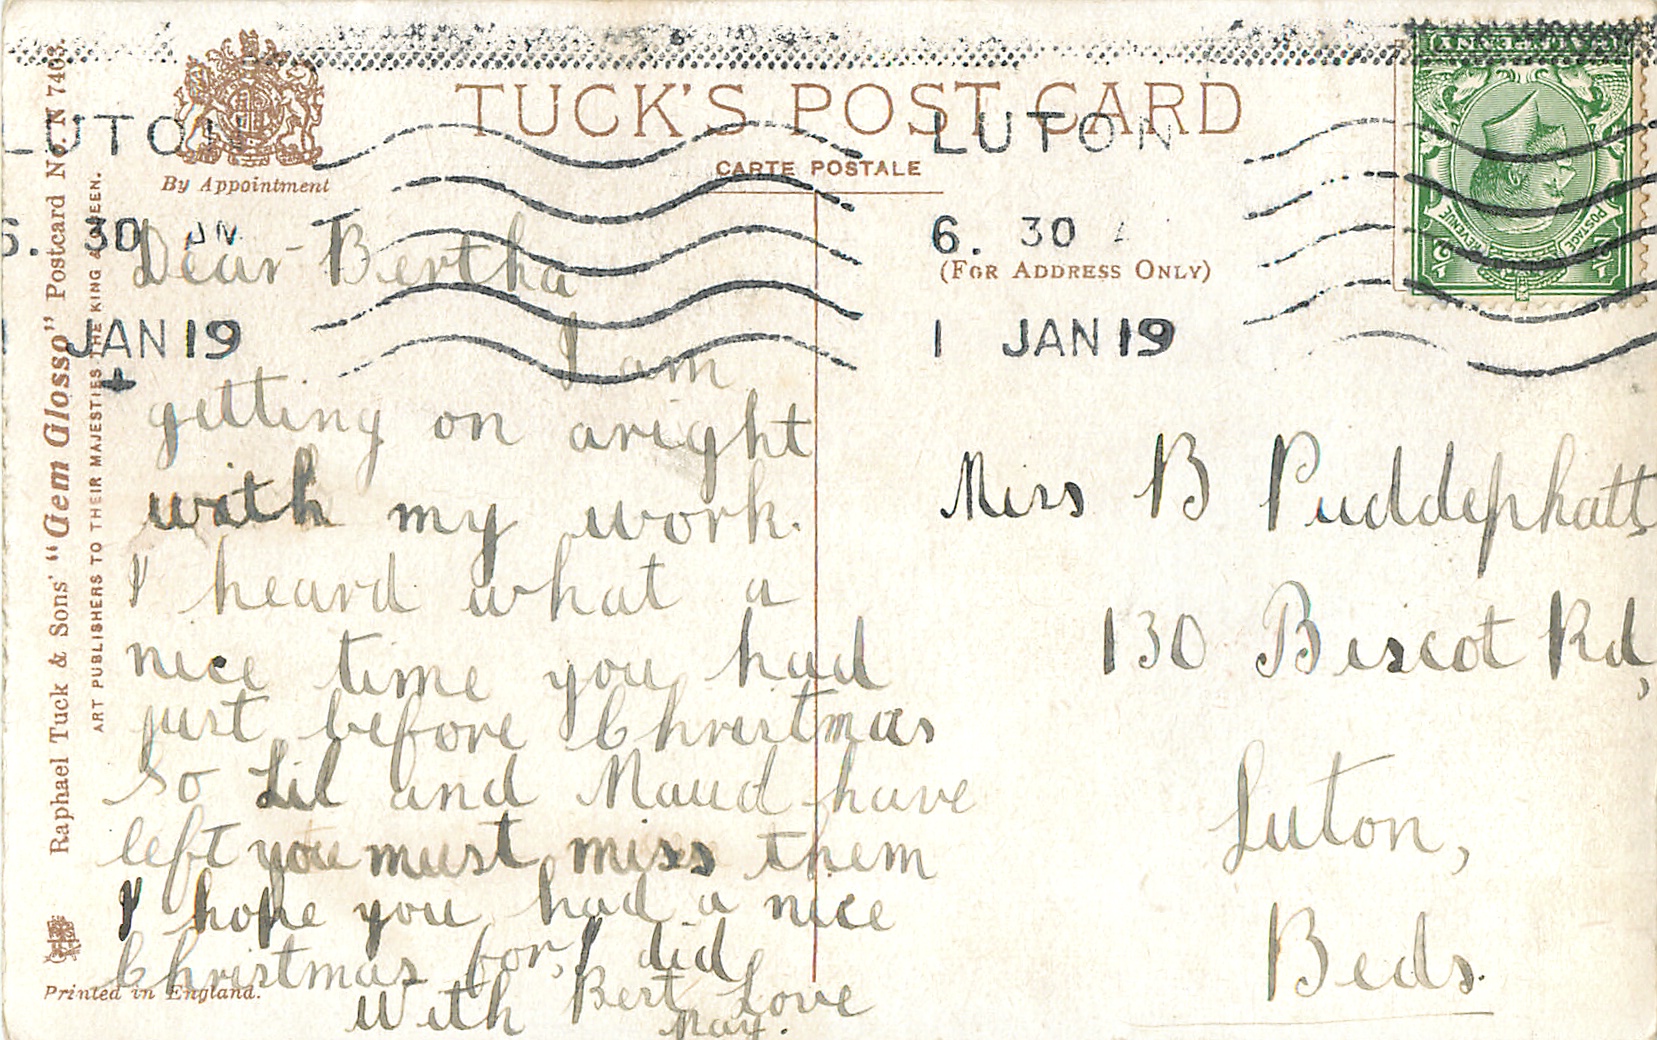 TUCK'S POST CARD
CARTE POSTALE
By Appointment
(FOR ADDRESS ONLY)
LUTON
6. 30 AM
1 JAN 19
LUTON
6. 30 A
1 JAN 19
HALFPENNY
POSTAGE
REVENUE
½
½
Raphael Tuck & Sons' "Gem Glosso" Postcard No. N 7403.
ART PUBLISHERS TO THEIR MAJESTIES THE KING & QUEEN.
Printed in England.
Dear Bertha
I am
getting on aright
with my work.
I heard what a
nice time you had
just before Christmas
So Lil and Maud have
left you must miss them
I hope you had a nice
Christmas for, I did
With Best Love
May.
Miss B Puddephatt,
130 Biscot Rd,
Luton,
Beds.